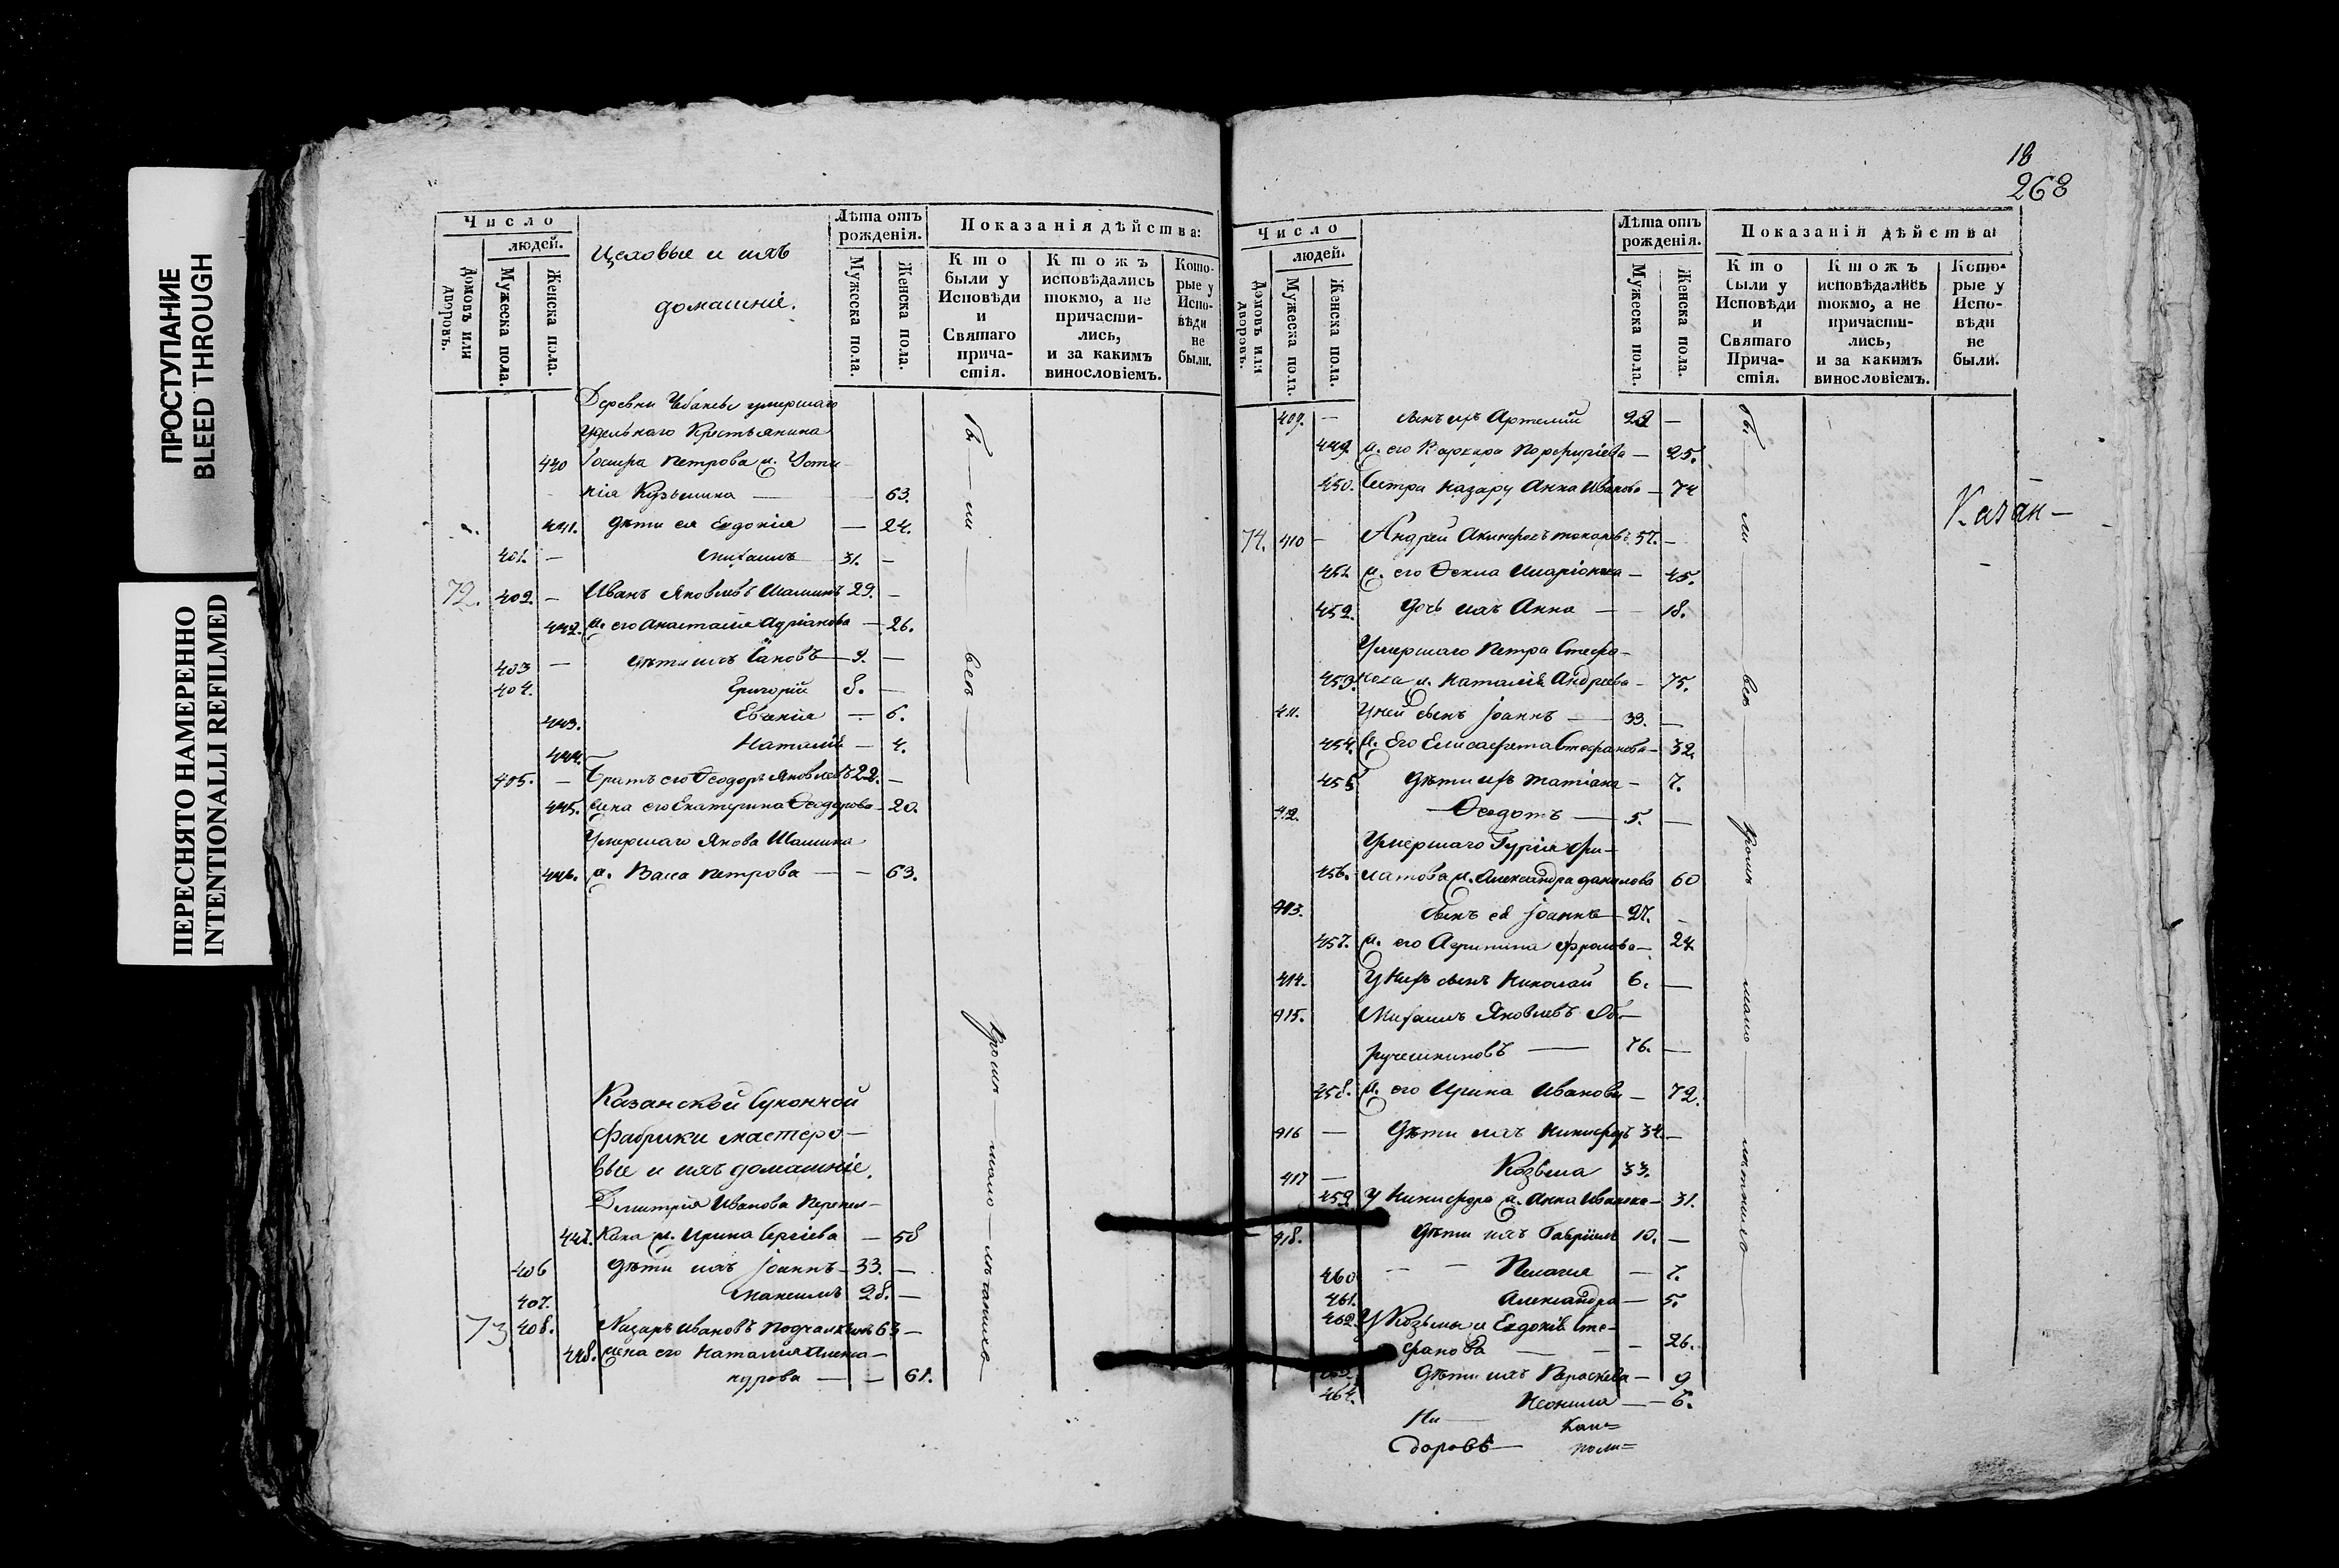 ПРОСТУПАНИЕ
BLEED THROUGH
ПЕРЕСНЯТО НАМЕРЕННО
INTENTIONALLI REFILMED
Число
людей.
Домовъ или дворовъ.
Мужеска пола.
Женска пола.
Цеховые и ихъ
домашніе.
Лѣта отъ рожденія.
Мужеска пола.
Женска пола.
Показанія дѣйства:
Кто были у Исповѣди и Святаго причастія.
Ктожъ исповѣдались токмо, а не причастились, и за какимъ винословіемъ.
Которые у Исповѣди не были.
Деревни умершаго
Удельнаго Крестьянина
440 Петрова ж. Усти-
нія Кузьмина — 63.
441. дѣти ея Евдокія — 24.
401. — Михаилъ 31. —
72. 402. — Иванъ Яковлевъ Шашинъ 29. —
442. ж. его Анастасія Адріанова — 26.
403 — дѣти ихъ Іаковъ — 9. —
404. Григорій 8. —
443. Евгенія — 6.
444. Наталія — 4.
405. — Братъ его Ѳеодоръ Яковлевъ 22. —
445. жена его Екатерина Ѳеодорова — 20.
Умершаго Якова Шашина
446. ж. Васса Петрова — — 63.
Казанской Суконной
фабрики мастеро-
вые и ихъ домашніе.
Димитрія Иванова Перепел-
447. кана ж. Ирина Сергіева — 58
406 дѣти ихъ Іоаннъ — 33. —
407. Максимъ 28. —
73 408. Назаръ Ивановъ 63 —
448. жена его Наталія
— — 61.
Бы — ли — всѣ — кромѣ — мало — лѣтнихъ
18
268
Число
людей.
Домовъ или дворовъ.
Мужеска пола.
Женска пола.
Лѣта отъ рожденія.
Мужеска пола.
Женска пола.
Показанія дѣйства:
Кто были у Исповѣди и Святаго Причастія.
Ктожъ исповѣдались токмо, а не причастились, и за какимъ винословіемъ.
Которые у Исповѣди не были.
409. — сынъ ихъ Артемій 22 —
449. ж. его Порфиріева — 25.
450. Сестра Назару Анна Иванова — 74
74. 410 — Андрей Акинфовъ 57. —
451. ж. его Ѳекла Иларіонова — 45.
452. дочь ихъ Анна — — 18.
Умершаго Петра Стефа-
453. нова ж. Наталія Андреева — 75.
411. У ней сынъ Іоаннъ — 33. —
454. ж. Его Елисавета Стефанова — 32.
455. дѣти ихъ Татіана — 7.
412. — Ѳедотъ — 5. —
Умершаго Гурія Фи-
456. латова ж. Александра Данилова 60
413. сынъ ея Іоаннъ — 27. —
457. ж. его Агрипина Фролова — 24.
414. У нихъ сынъ Николай 6. —
415. Михаилъ Яковлевъ Об-
ручешниковъ — 76. —
458. ж. его Ирина Иванова — 72.
416 — дѣти ихъ Никифоръ 34. —
417 — Козьма 33.
459 У Никифора ж. Анна Иванова — 31.
418. дѣти ихъ Гавріилъ 10. —
460 — — Пелагія — 7.
461. Александра — 5.
462 У Козьмы ж. Евдокія Сте-
фанова — — — 26.
463. дѣти ихъ Параскева — 9
464. Неонила — — 6.
Ни
доровъ —
Бы — ли — всѣ — кромѣ — мало — лѣтнихъ
Казан —